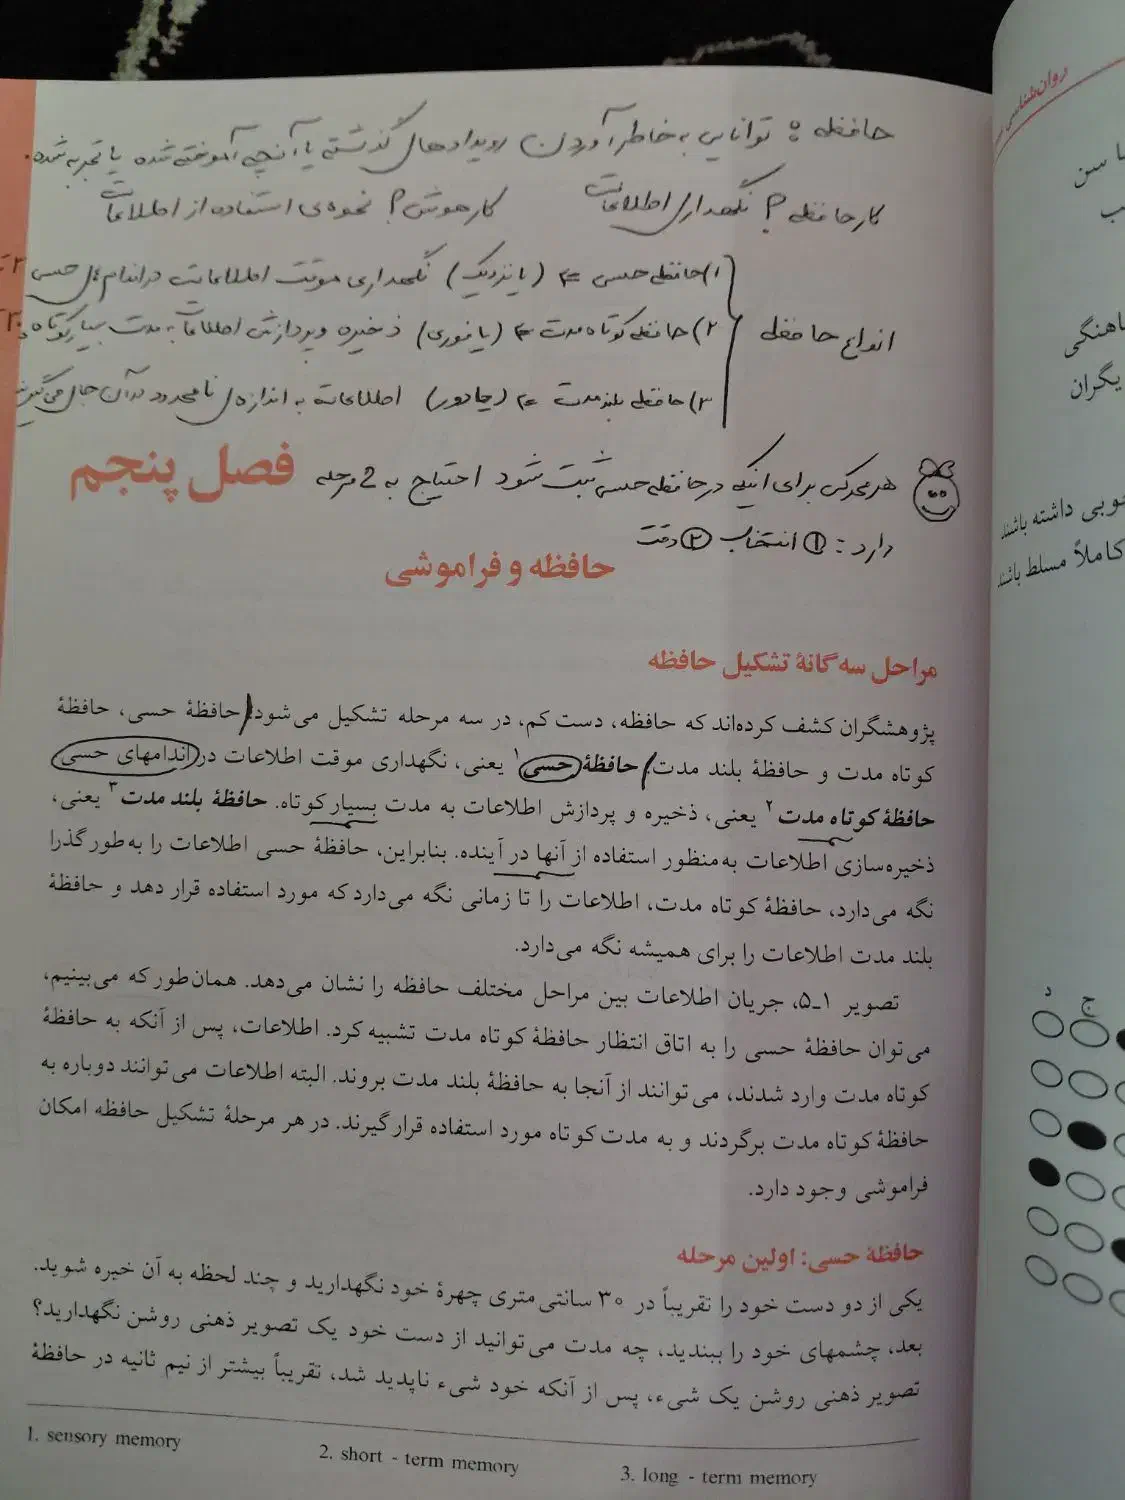 حافظه: توانایی به خاطر آوردن رویدادهای گذشته یا آنچه آموخته شده یا تجربه شده.
کار حافظه؟ نگهداری اطلاعات کار هوش؟ نحوه‌ی استفاده از اطلاعات
انواع حافظه
۱) حافظه حسی ⇐ (یا نزدیک) نگهداری موقت اطلاعات در اندام‌های حسی
۲) حافظه کوتاه مدت ⇐ (یا فوری) ذخیره و پردازش اطلاعات به مدت بسیار کوتاه
۳) حافظه بلند مدت ⇐ اطلاعات به اندازه‌ی نامحدود در آن جای می‌گیرند
هر محرکی برای اینکه در حافظه حسی ثبت شود احتیاج به 2 مرحله
دارد: ① انتخاب ② دقت
فصل پنجم
حافظه و فراموشی
مراحل سه گانهٔ تشکیل حافظه
پژوهشگران کشف کرده‌اند که حافظه، دست کم، در سه مرحله تشکیل می‌شود: حافظهٔ حسی، حافظهٔ
کوتاه مدت و حافظهٔ بلند مدت. حافظهٔ حسی۱ یعنی، نگهداری موقت اطلاعات در اندامهای حسی
حافظهٔ کوتاه مدت۲ یعنی، ذخیره و پردازش اطلاعات به مدت بسیار کوتاه. حافظهٔ بلند مدت۳ یعنی،
ذخیره‌سازی اطلاعات به‌منظور استفاده از آنها در آینده. بنابراین، حافظهٔ حسی اطلاعات را به‌طور گذرا
نگه می‌دارد، حافظهٔ کوتاه مدت، اطلاعات را تا زمانی نگه می‌دارد که مورد استفاده قرار دهد و حافظهٔ
بلند مدت اطلاعات را برای همیشه نگه می‌دارد.
تصویر ۱ـ۵، جریان اطلاعات بین مراحل مختلف حافظه را نشان می‌دهد. همان‌طور که می‌بینیم،
می‌توان حافظهٔ حسی را به اتاق انتظار حافظهٔ کوتاه مدت تشبیه کرد. اطلاعات، پس از آنکه به حافظهٔ
کوتاه مدت وارد شدند، می‌توانند از آنجا به حافظهٔ بلند مدت بروند. البته اطلاعات می‌توانند دوباره به
حافظهٔ کوتاه مدت برگردند و به مدت کوتاه مورد استفاده قرار گیرند. در هر مرحلهٔ تشکیل حافظه امکان
فراموشی وجود دارد.
حافظهٔ حسی: اولین مرحله
یکی از دو دست خود را تقریباً در ۳۰ سانتی‌متری چهرهٔ خود نگهدارید و چند لحظه به آن خیره شوید.
بعد، چشمهای خود را ببندید، چه مدت می‌توانید از دست خود یک تصویر ذهنی روشن نگهدارید؟
تصویر ذهنی روشن یک شیء، پس از آنکه خود شیء ناپدید شد، تقریباً بیشتر از نیم ثانیه در حافظهٔ
1. sensory memory 2. short - term memory 3. long - term memory
روان‌شناسی
سن
یگران
وبی داشته باشند
کاملاً مسلط باشند
ج د